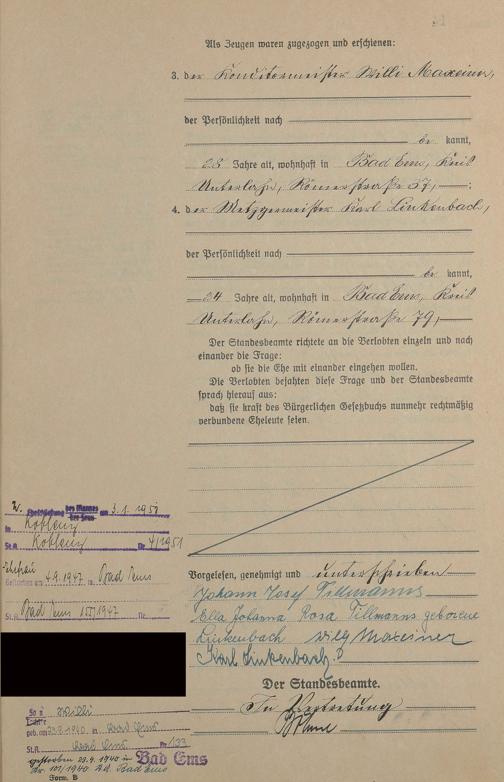 Als Zeugen waren zugezogen und erschienen:
3. der Konditormeister Willi Maxeiner,
der Persönlichkeit nach
be kannt,
28 Jahre alt, wohnhaft in Bad Ems, Kreis
Unterlahn, Römerstraße 37,
4. der Metzgermeister Karl Linkenbach,
der Persönlichkeit nach
be kannt,
24 Jahre alt, wohnhaft in Bad Ems, Kreis
Unterlahn, Römerstraße 79,
Der Standesbeamte richtete an die Verlobten einzeln und nach
einander die Frage:
ob sie die Ehe mit einander eingehen wollen.
Die Verlobten bejahten diese Frage und der Standesbeamte
sprach hierauf aus:
daß sie kraft des Bürgerlichen Gesetzbuchs nunmehr rechtmäßig
verbundene Eheleute seien.
2. Eheschließung des Mannes am 3.1.1951
der Frau
in Koblenz
St.A. Koblenz Nr 4/1951
Ehefrau
Gestorben am 4.9.1947 in Bad Ems
St.A. Bad Ems 155/1947 Nr.
Vorgelesen, genehmigt und unterschrieben
Johann Josef Tillmanns
Ella Johanna Rosa Tillmanns geborene
Linkenbach Willy Maxeiner
Karl Linkenbach.
Der Standesbeamte.
In Vertretung
Sohn Willi
geb. am 1940 in Bad Ems
St.A. Bad Ems Nr 133
gestorben 29.9.1940 in Bad Ems
Nr. 101/1940 Bad Ems
Form. B